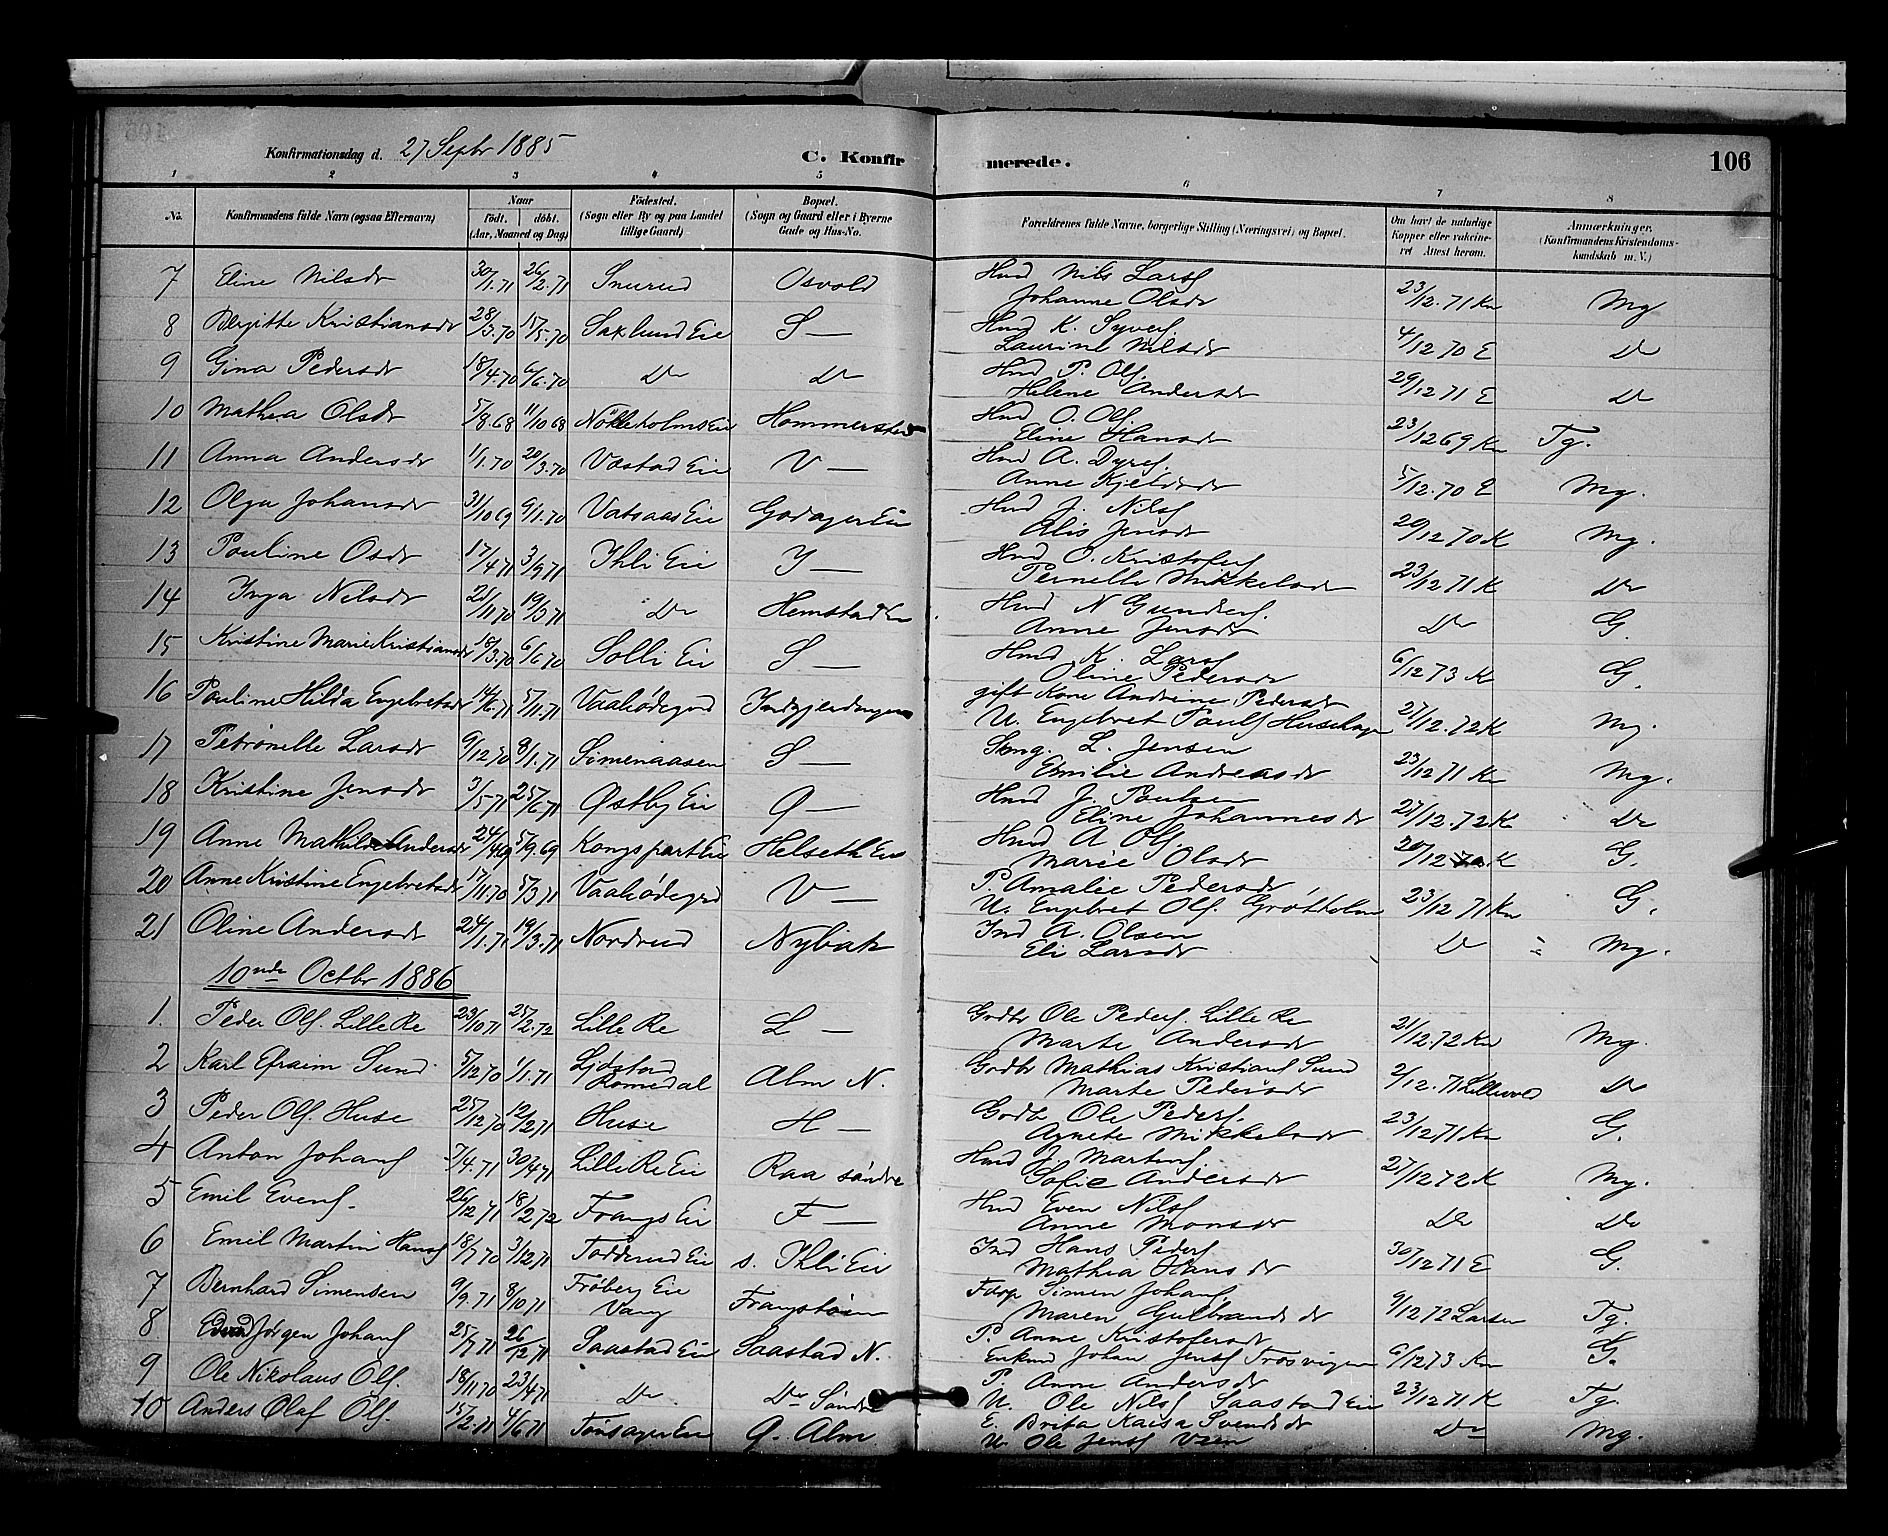 Konfirmationsdag d. 27 Septbr 1885
C. Konfir merede. 106
1 2 3 4 5 6 7 8
No. Konfirmandens fulde Navn (ogsaa Efternavn) Naar födt. döbt. (Aar, Maaned og Dag) Födested. (Sogn eller By og paa Landet tillige Gaard) Bopæl. (Sogn og Gaard eller i Byerne Gade og Hus-No. Forældrenes fulde Navne, borgerlige Stilling (Næringsvei) og Bopæl. Om havt de naturlige Kopper eller vakcineret Attest herom. Anmærkninger. (Konfirmandens Kristendomskundskab m. V.)
7 Eline Nilsdr 30/1.71 26/2.71 Snurud Osvold Hmd Nils Larsf Johanne Olsdr 23/12.71 Kn Mg
8 Birgitte Kristiansdr 28/3.70 15/5.70 Saxlund Eie S — Hmd K. Syverf. Laurine Nilsdr 4/12 70 E Do
9 Gina Pedersdr 18/4.70 6/6.70 Do Do Hmd P. Olf. Helene Andersdr 29/12 71 E Do
10 Mathea Olsdr 5/8.68 11/10 68 Nökleholms Eie Hommerstad Hmd O. Olf. Eline Hansdr 23/12 69 Kn Tg.
11 Anna Andersdr 1/1.70 20/3.70 Vastad Eie V — Hmd A. Dyref. Anne Kjeldsdr 5/12.70 E Mg.
12 Olga Johansdr 31/10 69 9/1.70 Vatsaas Eie Godager Eie Hmd J. Nilsf Elis Jensdr 20/12 70 K Mg.
13 Pauline Osdr 17/4 71 3/9 71 Ihle Eie I — Hmd O. Kristoferf Pernelle Mikkelsdr 23/12 71 K Do
14 Inga Nilsdr 21/11 70 19/3 71 Do Hemstad Eie Hmd N Gunderf. Anne Jensdr Do G.
15 Kristine Marie Kristiansdr 18/3.70 6/6 70 Solli Eie S — Hmd K. Larsf Oline Pedersdr 6/12 73 K G.
16 Pauline Hilda Engebretsdr 14/6.71 5/11.71 Vaalsödegrd Indgjerdingen gift Kone Andrine Pedersdr U. Engebret Paulsf 27/12.72 K Mg.
17 Petronelle Larsdr 9/12 70 8/1.71 Simenaasen S — L. Jensen Emilie Andreasdr 23/12 71 Kn Mg.
18 Kristine Jensdr 3/5 71 25/6 71 Østby Eie Ø — Hmd J. Paulsen Eline Johannesdr 27/12.72 K Do
19 Anne Mathilde Andersdr 24/4 69 5/9.69 Kongsparten Eie Helseth Eie Hmd A Olf Marie Olsdr 20/12 K G.
20 Anne Kristine Engebretsdr 17/11.70 5/3 71 Vaalsödegrd V — P. Amalie Pedersdr U. Engebret Olf. Grötholm 23/12 71 Kn G.
21 Oline Andersdr 24/1.71 19/3.71 Nordrud Nybak Ind A. Olsen Eli Larsdr Do = Mg.
10nde Octbr 1886
1. Peder Olf. Lille Re 23/10 71 25/2.72 Lille Re L — Grdbr Ole Pederf. Lille Re Marte Andersdr 21/12.72 Kn Mg.
2 Karl Efraim Sund 5/12.70 1/1.71 Romedal Alm N. Grdbr Mathias Kristianf Sund Marte Pedersdr 2/12.71 Do
3 Peder Olf. Huse 25/12 70 12/2 71 Huse H — Grdb Ole Pederf. Agnete Mikkelsdr 23/12 71 Kn G.
4 Anton Johanf 7/4.71 30/4 71 Lille Re Eie Raa söndre Hmd J. Martinf. Sofie Andersdr 27/12 72 K Mg.
5 Emil Evenf. 26/12 71 18/2 72 Frangs Eie F — Hmd Even Nilsf Anne Monsdr Do Do
6 Emil Martin Hansf 18/7 70 3/12 71 Fodderud Eie s. Ihle Eie Ind Hans Pederf Mathea Hansdr 30/12 71 E G.
7 Bernhard Simensen 9/9.71 8/10 71 Fröberg Eie Vang Frangstöen Simen Johanf Maren Gulbrandsdr 9/12 72 Larsen Tg.
8 Jörgen Johanf 25/7 71 26/12 71 Saastad Eie Saastad N. P. Anne Kristofersdr Enkmd Johan Jensf Trosvigen 6/12 73 Kn G.
9 Ole Nikolaus Olf. 18/11 70 23/4 71 Do Do Söndre P. Anne Andersdr U. Ole Nilsf Saastad Eie 23/12 71 K Tg.
10 Anders Olaf Olf. 15/2.71 4/6 71 Tönsager Eie Ø. Alm E. Brita Kaisa Svendsdr U. Ole Jensf Do Mg.